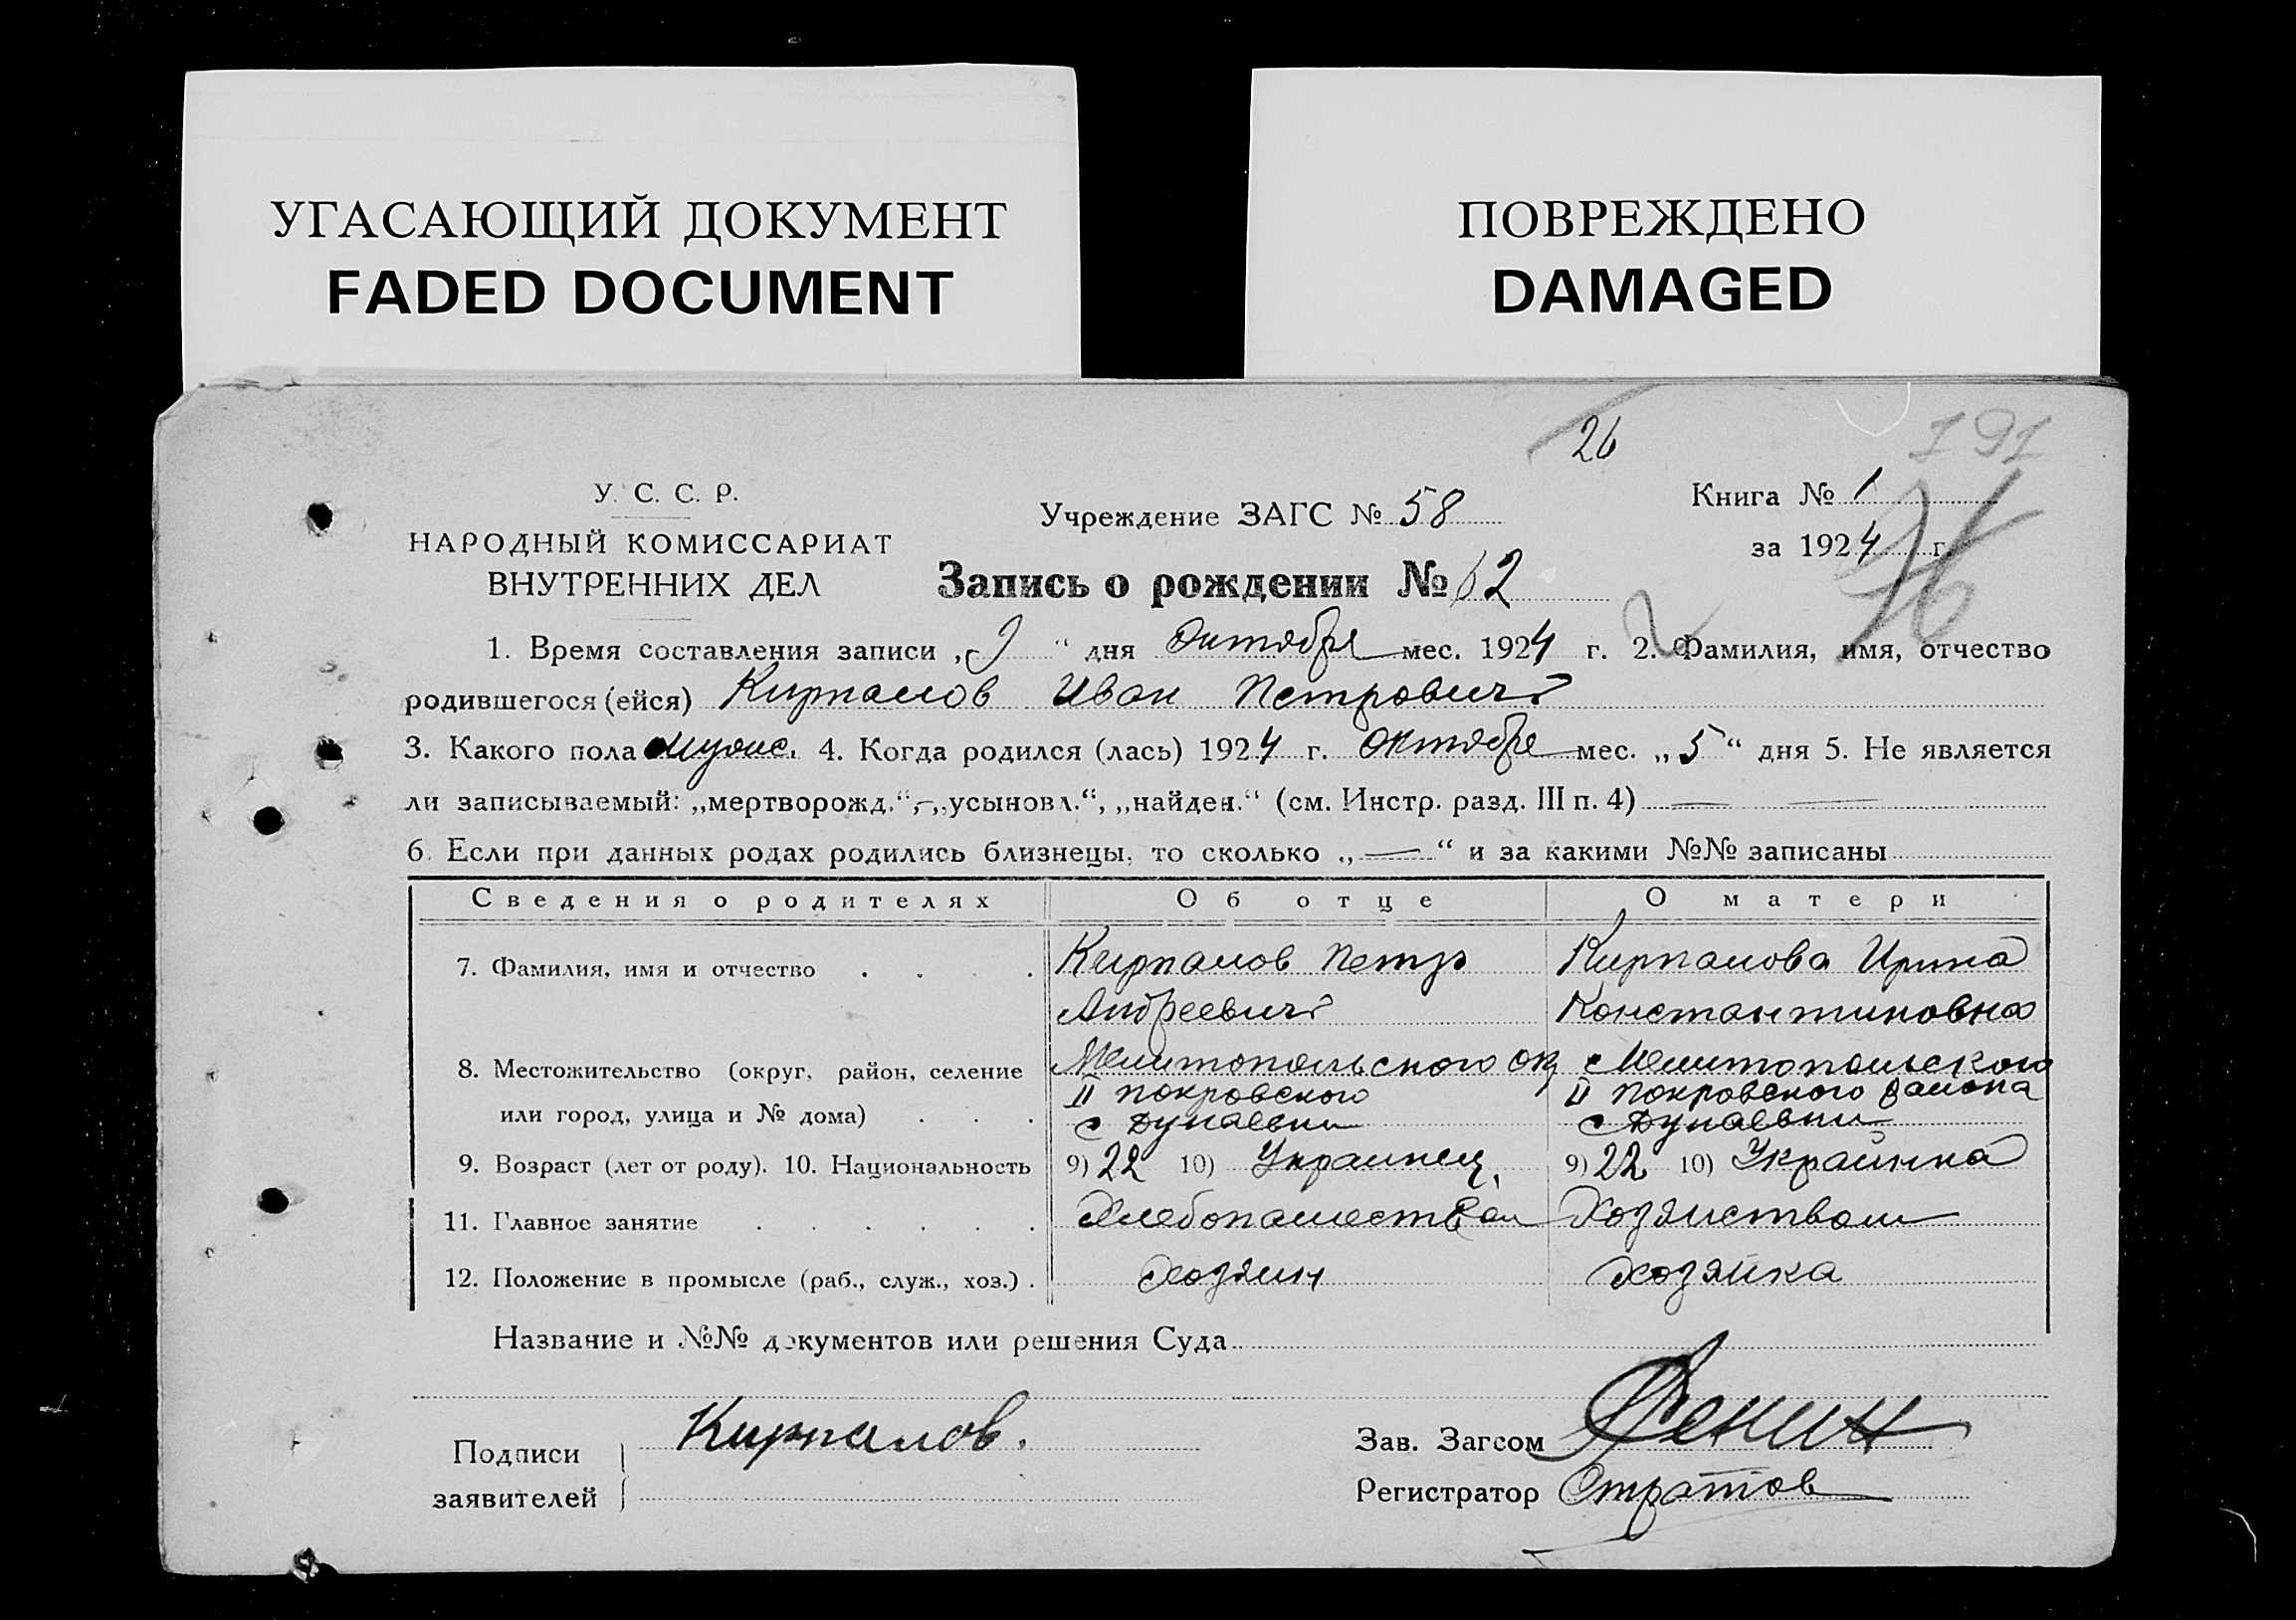 УГАСАЮЩИЙ ДОКУМЕНТ
FADED DOCUMENT
ПОВРЕЖДЕНО
DAMAGED
26
191
У. С. С. Р.
НАРОДНЫЙ КОМИССАРИАТ
ВНУТРЕННИХ ДЕЛ
Учреждение ЗАГС № 58
Книга № 1
за 1924 г.
76
Запись о рождении № 62
2
1. Время составления записи „9“ дня Октября мес. 1924 г. 2. Фамилия, имя, отчество
родившегося (ейся) Кирпалов Иван Петровичъ
3. Какого пола мужс. 4. Когда родился (лась) 1924 г. Октября мес. „5“ дня 5. Не является
ли записываемый: „мертворожд.“, „усыновл.“, „найден.“ (см. Инстр. разд. III п. 4) — —
6. Если при данных родах родились близнецы, то сколько „—“ и за какими №№ записаны
Сведения о родителях Об отце О матери
7. Фамилия, имя и отчество . . . . Кирпалов Петр Кирпалова Ирина
Андреевичъ Константиновна
8. Местожительство (округ, район, селение Мелитопольского ок Мелитопольского
II покровского II покровского района
или город, улица и № дома) . . . с Дунаевки с Дунаевки
9. Возраст (лет от роду). 10. Национальность 9) 22 10) Украинец 9) 22 10) Украинка
11. Главное занятие . . . . . . Хлебопашеством Хозяйством
12. Положение в промысле (раб., служ., хоз.) . хозяин хозяйка
Название и №№ документов или решения Суда
Подписи
заявителей
Кирпалов.
Зав. Загсом
Регистратор Стратов